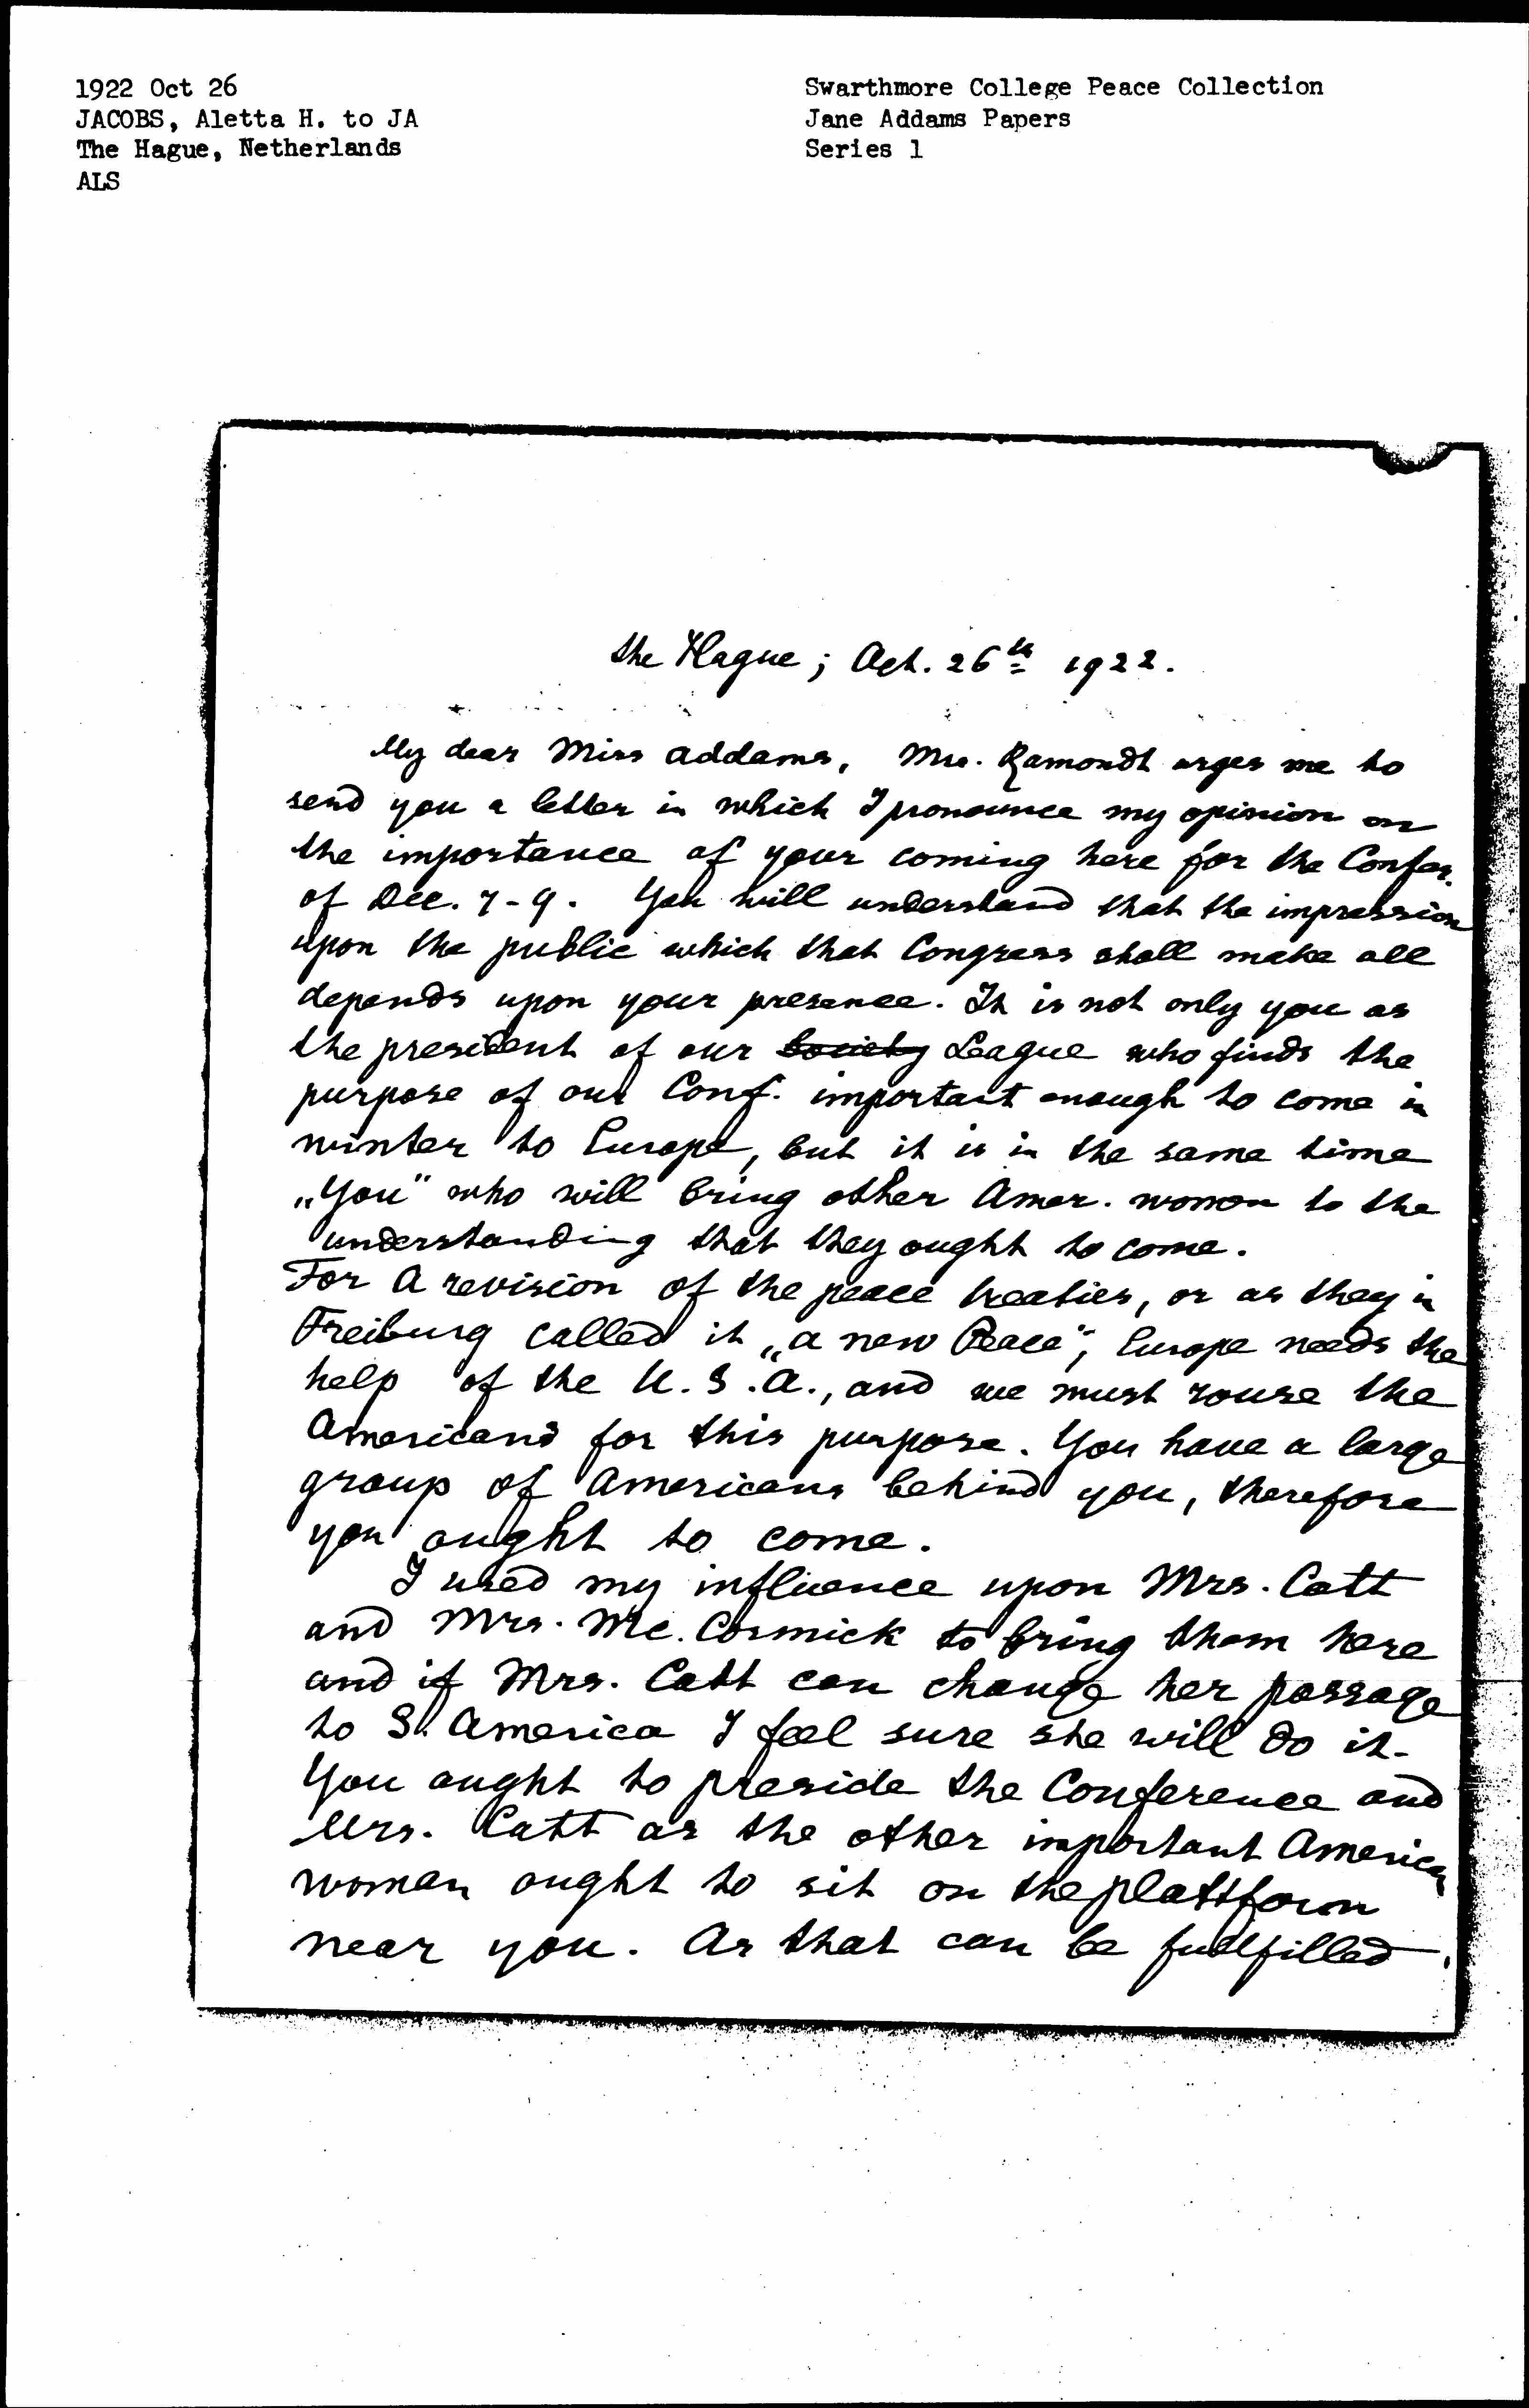 1922 Oct 26
JACOBS, Aletta H. to JA
The Hague, Netherlands
ALS
Swarthmore College Peace Collection
Jane Addams Papers
Series 1
the Hague; Oct. 26th 1922.
My dear Miss Addams, Mrs. Ramondt urges me to
send you a letter in which I pronounce my opinion on
the importance of your coming here for the Confer.
of Dec. 7-9. You will understand that the impression
upon the public which that Congress shall make all
depends upon your presence. It is not only you as
the president of our Society League who finds the
purpose of our Conf. important enough to come in
winter to Europe, but it is in the same time
„You" who will bring other Amer. women to the
understanding that they ought to come.
For a revision of the peace treaties, or as they in
Freiburg called it „a new Peace", Europe needs the
help of the U.S.A., and we must rouse the
Americans for this purpose. You have a large
group of Americans behind you, therefore
you ought to come.
I used my influence upon Mrs. Catt
and Mrs. Mc. Cormick to bring them here
and if Mrs. Catt can change her passage
to S. America I feel sure she will do it.
You ought to preside the Conference and
Mrs. Catt as the other important American
woman ought to sit on the plattform
near you. As that can be fullfilled,